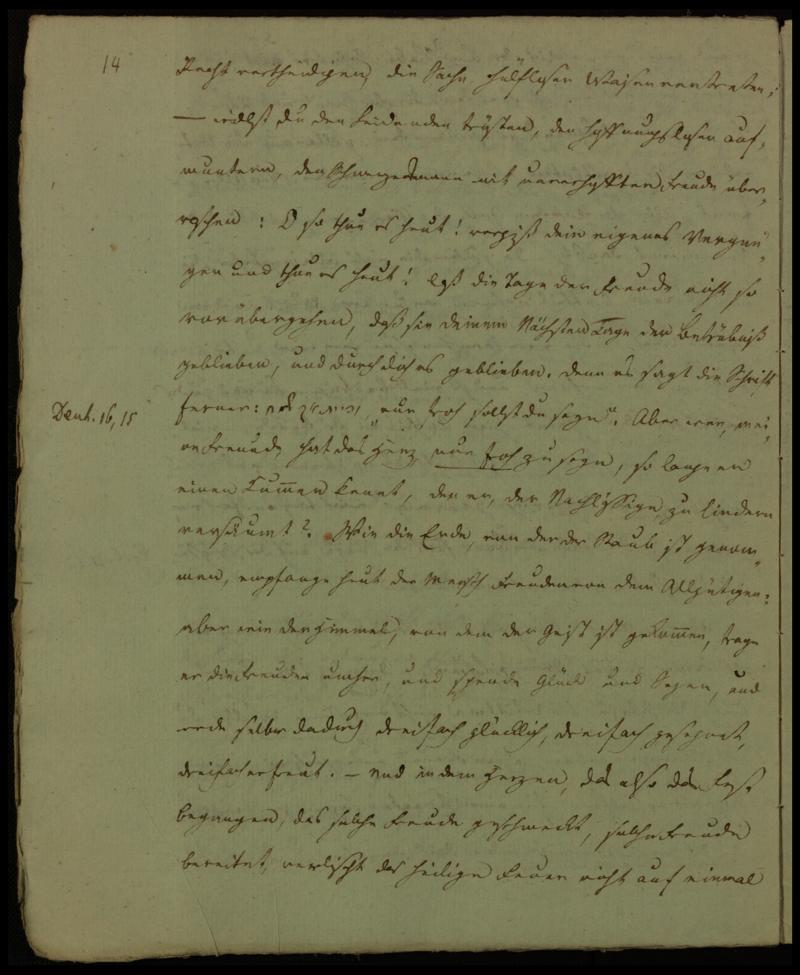 14
Recht vertheidigen, die Sache hülfloser Waisen vertreten;
— willst du den Leidenden trösten, den Hoffnungslosen auf-
muntern, den mit unverhofften Freude über-
raschen: O so thue es heut! vergiß dein eigenes Vergnü-
gen und thue es heut! Laß die Tage der Freude nicht so
vorübergehen, daß sie deinem Nächsten Tage der Betrübniß
geblieben, und durch dich es geblieben. Denn es sagt die Schrift
Deut. 16, 15
ferner: והיית אך שמח „nur froh sollst du seyn“. Aber wer, mei-
ne Freunde, hat das Herz nur froh zu seyn, so lange er
einen Kummer kennt, den er, der Nachlässige, zu lindern
versäumt? Wie die Erde, von der der Staub ist genom-
men, empfange heut der Mensch Freuden von dem Allgütigen:
aber wie der Himmel, von dem der Geist ist gekommen, trage
er die Freuden umher, und spende Glück und Segen, und
werde selber dadurch dreifach glücklich, dreifach gesegnet,
dreifach erfreut. — Und in dem Herzen, das also das Fest
begangen, das solche Freude geschmeckt, solche Freude
bereitet, verlischt das heilige Feuer nicht auf einmal